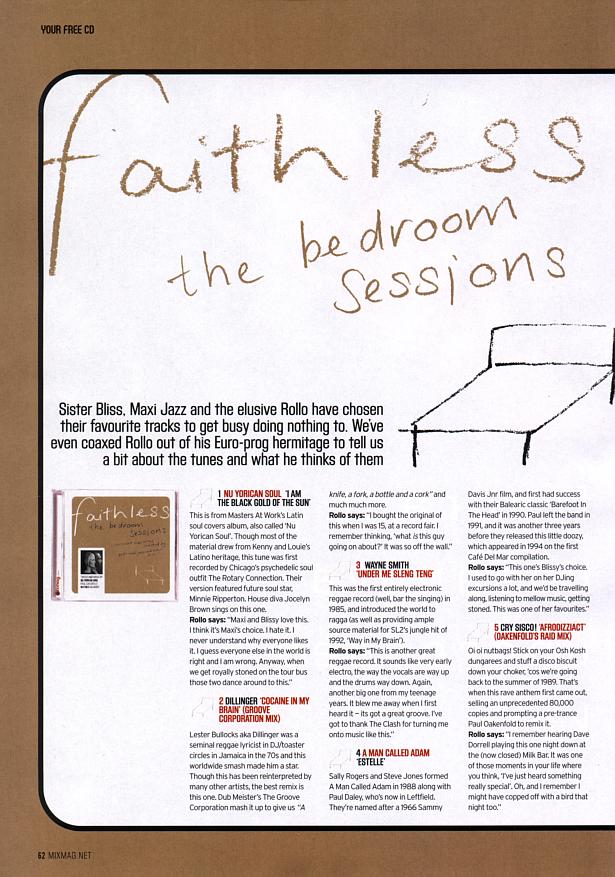 YOUR FREE CD
faithless
the bedroom
sessions
Sister Bliss, Maxi Jazz and the elusive Rollo have chosen
their favourite tracks to get busy doing nothing to. We've
even coaxed Rollo out of his Euro-prog hermitage to tell us
a bit about the tunes and what he thinks of them
faithless
the bedroom
sessions
1 NU YORICAN SOUL 'I AM
THE BLACK GOLD OF THE SUN'
This is from Masters At Work's Latin
soul covers album, also called 'Nu
Yorican Soul'. Though most of the
material drew from Kenny and Louie's
Latino heritage, this tune was first
recorded by Chicago's psychedelic soul
outfit The Rotary Connection. Their
version featured future soul star,
Minnie Ripperton. House diva Jocelyn
Brown sings on this one.
Rollo says: "Maxi and Blissy love this.
I think it's Maxi's choice. I hate it. I
never understand why everyone likes
it. I guess everyone else in the world is
right and I am wrong. Anyway, when
we get royally stoned on the tour bus
those two dance around to this."
2 DILLINGER 'COCAINE IN MY
BRAIN' (GROOVE
CORPORATION MIX)
Lester Bullocks aka Dillinger was a
seminal reggae lyricist in DJ/toaster
circles in Jamaica in the 70s and this
worldwide smash made him a star.
Though this has been reinterpreted by
many other artists, the best remix is
this one. Dub Meister's The Groove
Corporation mash it up to give us "A
knife, a fork, a bottle and a cork" and
much much more.
Rollo says: "I bought the original of
this when I was 15, at a record fair. I
remember thinking, 'what is this guy
going on about?' It was so off the wall."
3 WAYNE SMITH
'UNDER ME SLENG TENG'
This was the first entirely electronic
reggae record (well, bar the singing) in
1985, and introduced the world to
ragga (as well as providing ample
source material for SL2's jungle hit of
1992, 'Way in My Brain').
Rollo says: "This is another great
reggae record. It sounds like very early
electro, the way the vocals are way up
and the drums way down. Again,
another big one from my teenage
years. It blew me away when I first
heard it – its got a great groove. I've
got to thank The Clash for turning me
onto music like this."
4 A MAN CALLED ADAM
'ESTELLE'
Sally Rogers and Steve Jones formed
A Man Called Adam in 1988 along with
Paul Daley, who's now in Leftfield.
They're named after a 1966 Sammy
Davis Jnr film, and first had success
with their Balearic classic 'Barefoot In
The Head' in 1990. Paul left the band in
1991, and it was another three years
before they released this little doozy,
which appeared in 1994 on the first
Café Del Mar compilation.
Rollo says: "This one's Blissy's choice.
I used to go with her on her DJing
excursions a lot, and we'd be travelling
along, listening to mellow music, getting
stoned. This was one of her favourites."
5 CRY SISCO! 'AFRODIZZIACT'
(OAKENFOLD'S RAID MIX)
Oi oi nutbags! Stick on your Osh Kosh
dungarees and stuff a disco biscuit
down your choker, 'cos we're going
back to the summer of 1989. That's
when this rave anthem first came out,
selling an unprecedented 80,000
copies and prompting a pre-trance
Paul Oakenfold to remix it.
Rollo says: "I remember hearing Dave
Dorrell playing this one night down at
the (now closed) Milk Bar. It was one
of those moments in your life where
you think, 'I've just heard something
really special'. Oh, and I remember I
might have copped off with a bird that
night too."
62 MIXMAG.NET